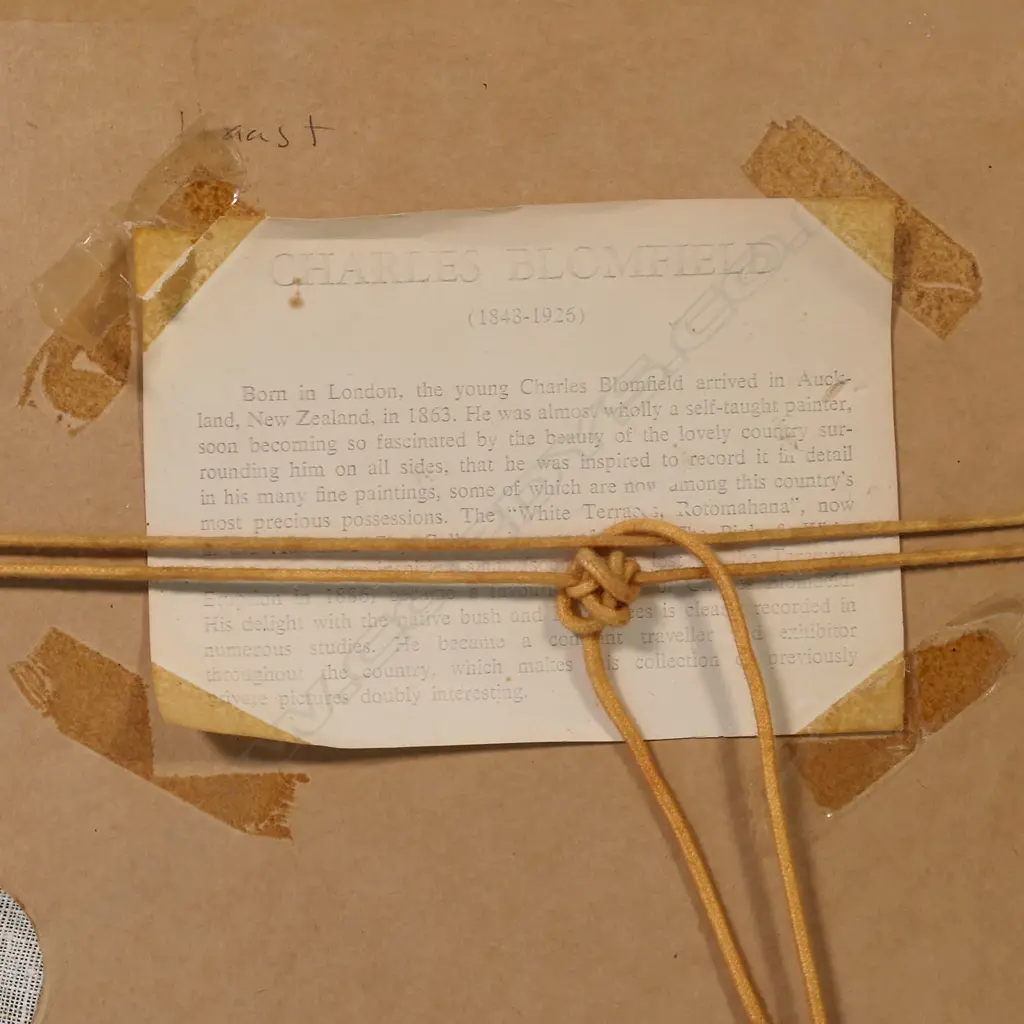 CHARLES BLOMFIELD
(1848-1926)
Born in London, the young Charles Blomfield arrived in Auck-
land, New Zealand, in 1863. He was almost wholly a self-taught painter,
soon becoming so fascinated by the beauty of the lovely country sur-
rounding him on all sides, that he was inspired to record it in detail
in his many fine paintings, some of which are now among this country's
most precious possessions. The "White Terraces, Rotomahana", now
in the
Eruption in 1886, became a
His delight with the native bush and is clearly recorded in
numerous studies. He became a traveller and exhibitor
throughout the country, which makes this collection of previously
private pictures doubly interesting.